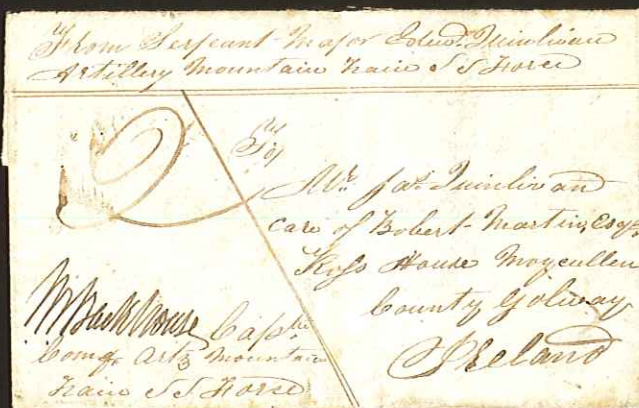 From Serjeant-Major Edwd. Quinlivan
Artillery Mountain Train S S Force
2
To
Mr. Jas. Quinlivan
care of Robert Martin, Esqr.
Ross House Moycullen
County Galway
Ireland
Backhouse Captn.
Comg. Arty Mountain
Train S S Force